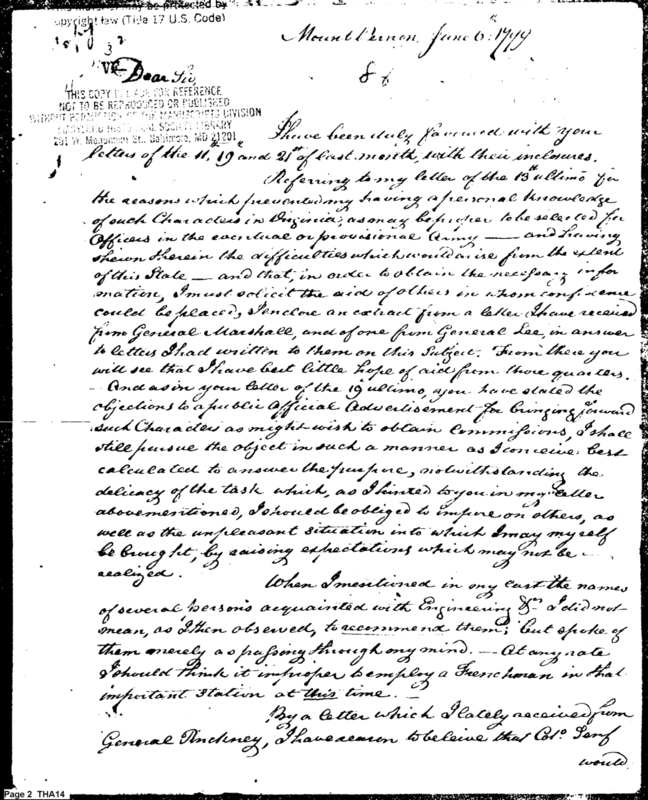 may be protected by
copyright law (Title 17 U.S. Code)
Mount Vernon, June 6th 1799
Dear Sir,
THIS COPY IS FOR REFERENCE
NOT TO BE REPRODUCED OR PUBLISHED
WITHOUT PERMISSION OF THE MANUSCRIPTS DIVISION
MARYLAND HISTORICAL SOCIETY LIBRARY
201 W. Monument St. Baltimore, MD 21201
I have been duly favoured with your
letters of the 11th, 19th and 21st of last month, with their inclosures.
Referring to my letter of the 13th ultimo for
the reasons which prevented my having a personal knowledge
of such Characters in Virginia, as may be proper to be selected for
Officers in the eventual or provisional Army — and having
shewn therein the difficulties which would arise from the extent
of this State — and that, in order to obtain the necessary infor
mation, I must solicit the aid of others in whom confidence
could be placed, I enclose an extract from a letter I have received
from General Marshall, and of one from General Lee, in answer
to letters I had written to them on this Subject. From these you
will see that I have but little hope of aid from those quarters.
- And as in your letter of the 19 ultimo, you have stated the
objections to a public Official Advertisement for bringing forward
such Characters as might wish to obtain Commissions, I shall
still pursue the object in such a manner as I conceive best
calculated to answer the purpose, notwithstanding the
delicacy of the task which, as I hinted to you in my letter
abovementioned, I should be obliged to impose on others, as
well as the unpleasant situation into which I may myself
be brought, by raising expectations which may not be
realized.
When I mentioned in my last the names
of several persons acquainted with Engineering &ca I did not
mean, as I then observed, to recommend them; but spoke of
them merely as passing through my mind. — At any rate
I should think it improper to employ a Frenchman in that
important Station at this time.
By a letter which I lately received from
General Pinckney, I have reason to beleive that Colo. Senf
would
Page 2 THA14